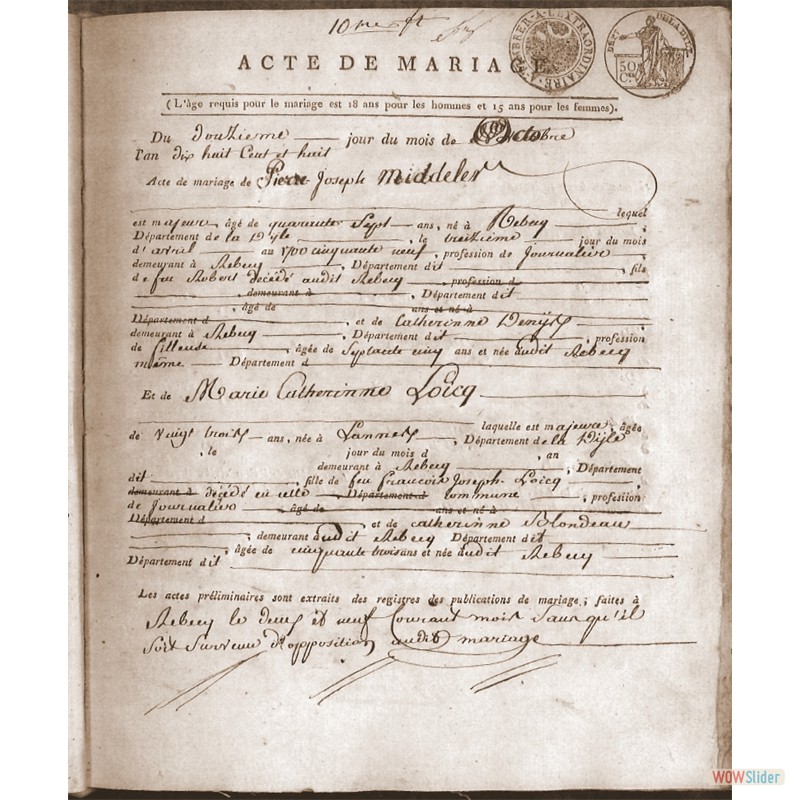 10
A TIMBRER A L'EXTRAORDINAIRE
DÉPT DE LA DYLE
50 Cs
ACTE DE MARIAGE.
(L'âge requis pour le mariage est 18 ans pour les hommes et 15 ans pour les femmes).
Du douzieme jour du mois de Octobre
l'an dix huit Cent et huit
Acte de mariage de Pierre Joseph Middeler
lequel
est majeur, âgé de quarante Sept ans, né à Rebecq,
Département de la Dyle, le treizieme jour du mois
d'avril au 1700 cinquante neuf, profession de Journalier,
demeurant à Rebecq, Département dit, fils
de feu Robert décédé audit Rebecq profession d
, demeurant à , Département dit
, âgé de ans et né à
Département d , et de Catherinne Denys
demeurant à Rebecq, Département dit, profession
de filleuse, âgée de Septante cinq ans et née audit Rebecq
même Département d
Et de Marie Catherinne Loicq
laquelle est majeure, âgée
de vingt trois ans, née à Lanners, Département de la Dyle
, le jour du mois d an
demeurant à Rebecq, Département
dit, fille de feu Francois Joseph Loicq
demeurant à décédé en cette Département d commune, profession
de Journalier âgé de ans et né à
Département d et de Catherinne Blondeau
, demeurant audit Rebecq Département dit
, âgée de cinquante trois ans et née audit Rebecq
Département dit
Les actes préliminaires sont extraits des registres des publications de mariage; faites à
Rebecq le deux et neuf Courant mois Sans qu'il
Soit Survenu d'opposition audit mariage
WOWSlider